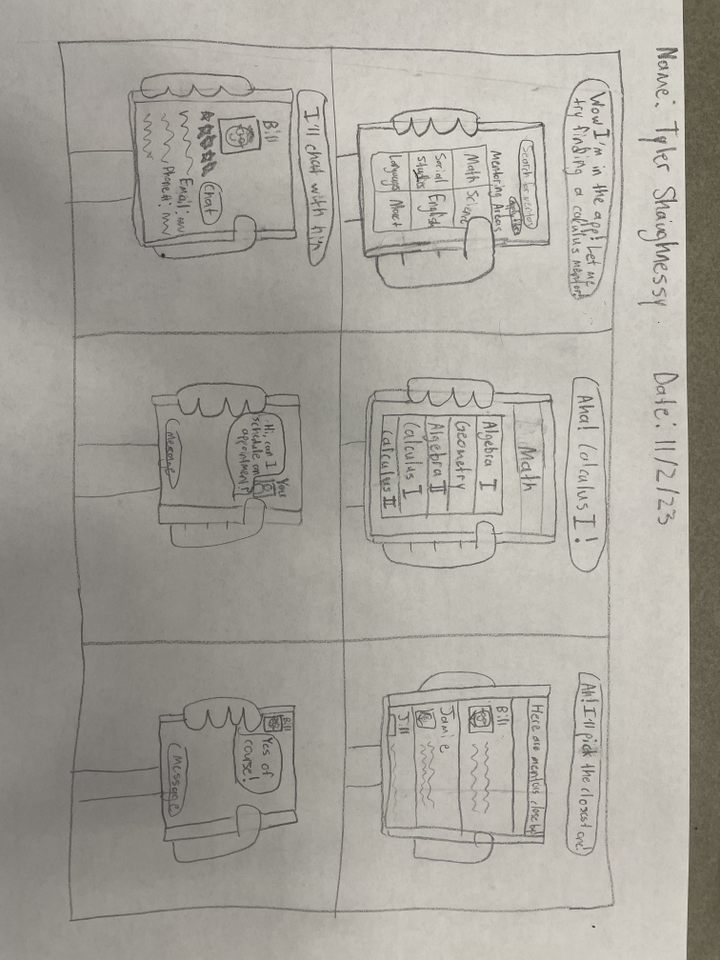 Name: Tyler Shaughnessy Date: 11/2/23
Wow I'm in the app! Let me
try finding a calculus mentor!
Search for mentors
Mentoring Areas
Math Science
Social
Studies
English
Languages
More+
Aha! Calculus I!
Math
Algebra I
Geometry
Algebra II
Calculus I
Calculus II
Ah! I'll pick the closest one!
Here are mentors close by
Bill
Jamie
Jill
I'll chat with him
Bill
Chat
Email:
Phone#:
You
Hi, can I
schedule an
appointment?
Message
Bill
Yes of
course!
Message